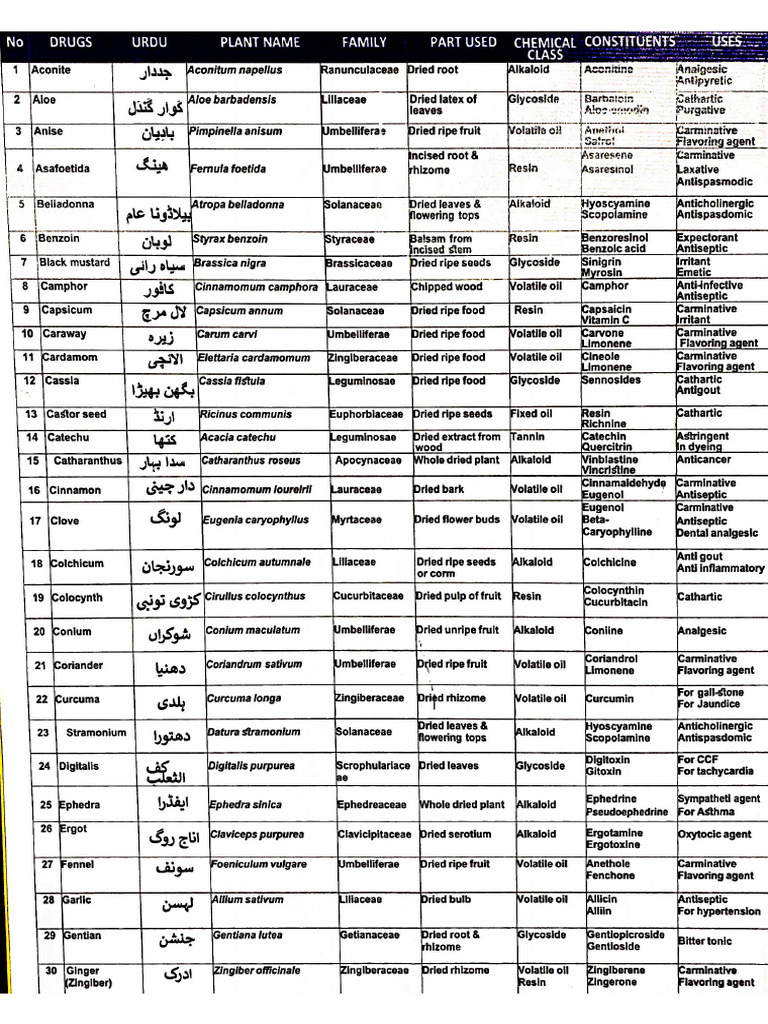 No DRUGS URDU PLANT NAME FAMILY PART USED CHEMICAL CLASS CONSTITUENTS USES
1 Aconite جددار Aconitum napellus Ranunculaceae Dried root Alkaloid Aconitine Analgesic Antipyretic
2 Aloe کوار گندل Aloe barbadensis Liliaceae Dried latex of leaves Glycoside Barbaloin Aloe-emodin Cathartic Purgative
3 Anise بادیان Pimpinella anisum Umbelliferae Dried ripe fruit Volatile oil Anethol Safrol Carminative Flavoring agent
4 Asafoetida ھینگ Fernula foetida Umbelliferae Incised root & rhizome Resin Asaresene Asaresinol Carminative Laxative Antispasmodic
5 Belladonna بیلاڈونا عام Atropa belladonna Solanaceae Dried leaves & flowering tops Alkaloid Hyoscyamine Scopolamine Anticholinergic Antispasdomic
6 Benzoin لوبان Styrax benzoin Styraceae Balsam from incised stem Resin Benzoresinol Benzoic acid Expectorant Antiseptic
7 Black mustard سیاہ رائی Brassica nigra Brassicaceae Dried ripe seeds Glycoside Sinigrin Myrosin Irritant Emetic
8 Camphor کافور Cinnamomum camphora Lauraceae Chipped wood Volatile oil Camphor Anti-infective Antiseptic
9 Capsicum لال مرچ Capsicum annum Solanaceae Dried ripe food Resin Capsaicin Vitamin C Carminative Irritant
10 Caraway زیرہ Carum carvi Umbelliferae Dried ripe food Volatile oil Carvone Limonene Carminative Flavoring agent
11 Cardamom الائچی Elettaria cardamomum Zingiberaceae Dried ripe food Volatile oil Cineole Limonene Carminative Flavoring agent
12 Cassia بگھن بھیڑا Cassia fistula Leguminosae Dried ripe food Glycoside Sennosides Cathartic Antigout
13 Castor seed ارنڈ Ricinus communis Euphorbiaceae Dried ripe seeds Fixed oil Resin Richnine Cathartic
14 Catechu کتھا Acacia catechu Leguminosae Dried extract from wood Tannin Catechin Quercitrin Astringent In dyeing
15 Catharanthus سدا بہار Catharanthus roseus Apocynaceae Whole dried plant Alkaloid Vinblastine Vincristine Anticancer
16 Cinnamon دار چینی Cinnamomum loureirii Lauraceae Dried bark Volatile oil Cinnamaldehyde Eugenol Carminative Antiseptic
17 Clove لونگ Eugenia caryophyllus Myrtaceae Dried flower buds Volatile oil Eugenol Beta-Caryophylline Carminative Antiseptic Dental analgesic
18 Colchicum سورنجان Colchicum autumnale Liliaceae Dried ripe seeds or corm Alkaloid Colchicine Anti gout Anti inflammatory
19 Colocynth کڑوی تونبی Cirullus colocynthus Cucurbitaceae Dried pulp of fruit Resin Colocynthin Cucurbitacin Cathartic
20 Conium شوکراں Conium maculatum Umbelliferae Dried unripe fruit Alkaloid Coniine Analgesic
21 Coriander دھنیا Coriandrum sativum Umbelliferae Dried ripe fruit Volatile oil Coriandrol Limonene Carminative Flavoring agent
22 Curcuma ہلدی Curcuma longa Zingiberaceae Dried rhizome Volatile oil Curcumin For gall-stone For Jaundice
23 Stramonium دھتورا Datura stramonium Solanaceae Dried leaves & flowering tops Alkaloid Hyoscyamine Scopolamine Anticholinergic Antispasdomic
24 Digitalis کف الثعلب Digitalis purpurea Scrophulariaceae Dried leaves Glycoside Digitoxin Gitoxin For CCF For tachycardia
25 Ephedra ایفڈرا Ephedra sinica Ephedreaceae Whole dried plant Alkaloid Ephedrine Pseudoephedrine Sympatheti agent For Asthma
26 Ergot اناج روگ Claviceps purpurea Clavicipitaceae Dried serotium Alkaloid Ergotamine Ergotoxine Oxytocic agent
27 Fennel سونف Foeniculum vulgare Umbelliferae Dried ripe fruit Volatile oil Anethole Fenchone Carminative Flavoring agent
28 Garlic لہسن Allium sativum Liliaceae Dried bulb Volatile oil Allicin Alliin Antiseptic For hypertension
29 Gentian جنشن Gentiana lutea Getianaceae Dried root & rhizome Glycoside Gentiopicroside Gentioside Bitter tonic
30 Ginger (Zingiber) ادرک Zingiber officinale Zingiberaceae Dried rhizome Volatile oil Resin Zingiberene Zingerone Carminative Flavoring agent